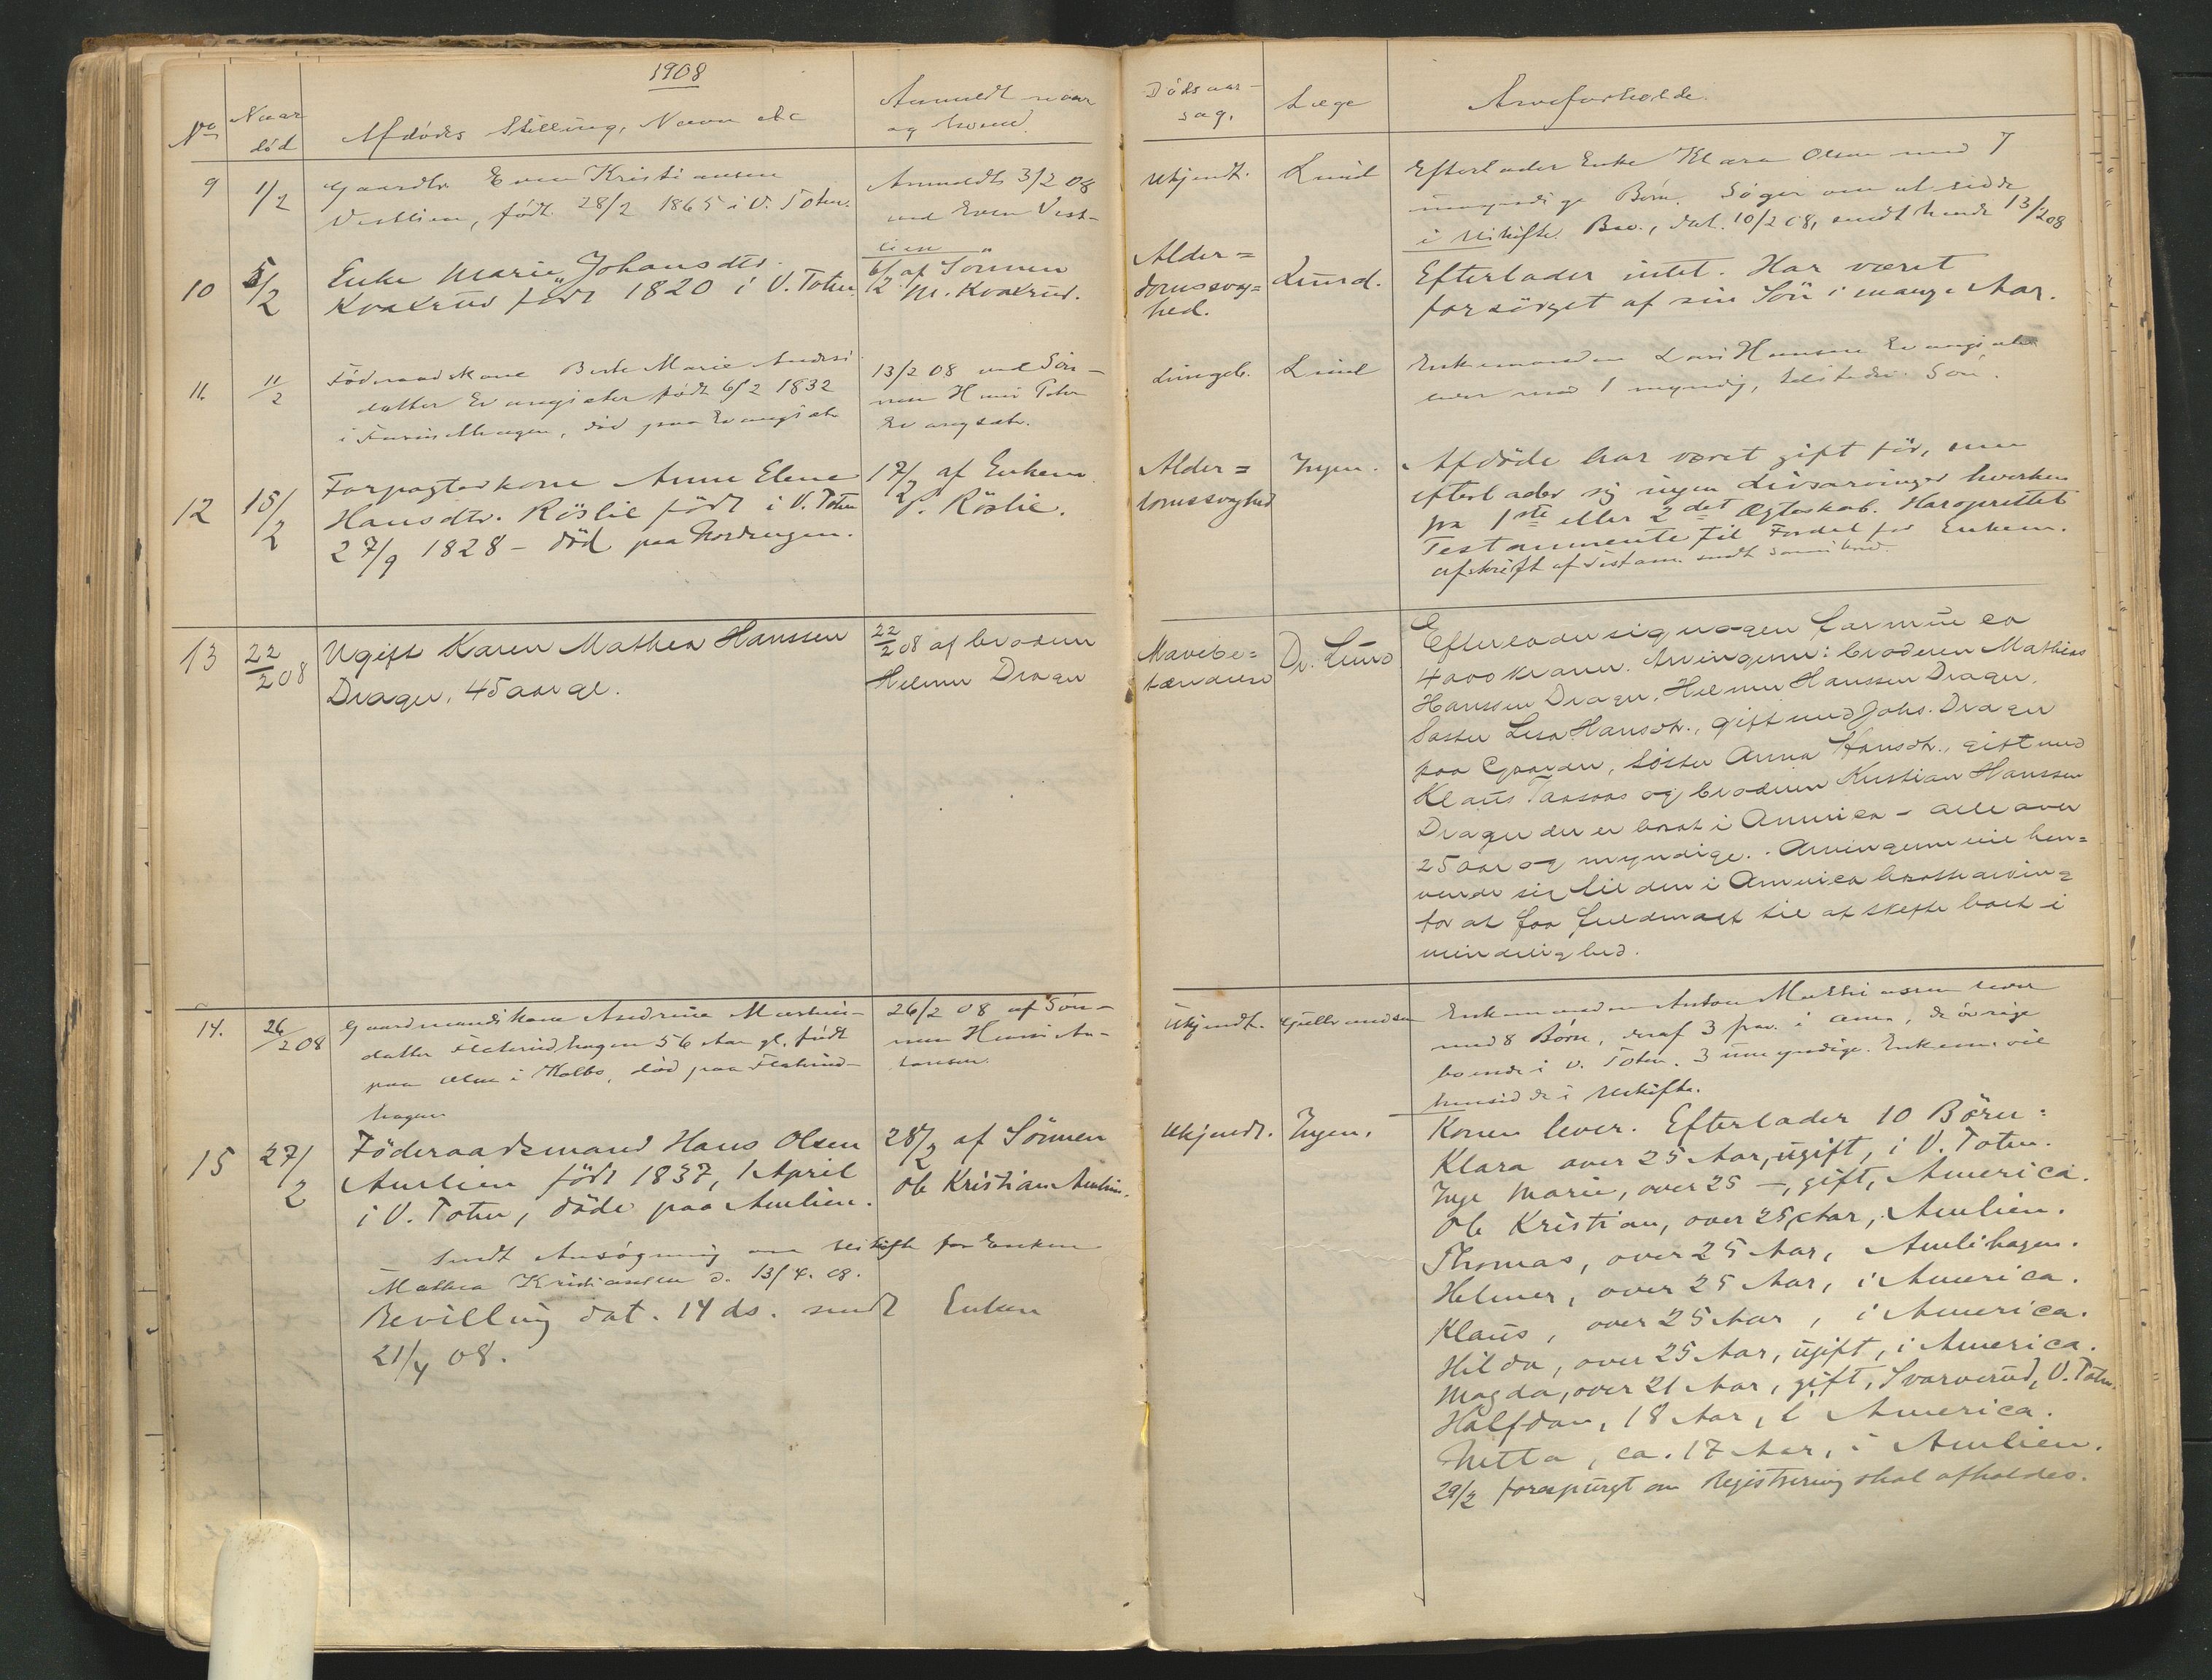 1908
No
Naar død
Afdødes Stilling, Navn etc
Anmeldt naar og hvem.
Dødsaarsag.
Læge
Arveforholde.
9
1/2
Gaardbr. Even Kristiansen
Vestlien, født 28/2 1865 i V. Toten.
Anmeldt 3/2 08
ved Even Vest-
lien
Ukjendt.
Lund
Efterlader Enke Klara Olsen med 7
umyndige Børn. Søger om at sidde
i Uskifte. Bev., dat. 10/2 08, sendt hende 13/2 08
10
5/2
Enke Marie Johansdtr.
Kvakrud født 1820 i V. Toten.
6/2 af Sønnen
M. Kvakrud.
Alder=
domssvag=
hed.
Lund.
Efterlader intet. Har været
forsørget af sin Søn i mange Aar.
11.
11/2
Føderaadskone Berte Marie Anders
datter født 6/2 1832
i død paa
13/2 08 ved Søn-
nen
Lungeb.
Lund
Enkemanden Lars Hansen
lever med 1 myndig, Søn.
12
15/2
Forpagterkone Anne Elene
Hansdtr. Røslie født i V. Toten
27/9 1828 - død paa Nordengen.
17/2 af Enkem.
P. Røslie.
Alder=
domssvaghed
Ingen.
Afdøde har været gift før, men
efterlader sig ingen Livsarvinger hverken
fra 1ste eller 2det Ægteskab. Har oprettet
Testamente til Fordel for Enkem.
Afskrift af Testam. sendt
13
22/2 08
Ugift Karen Mathea Hanssen
Drager, 45 aar gl.
22/2 08 af broderen
Helmer Drager
Mavebe=
tændelse
Dr. Lund
Efterlader sig nogen formue ca
4000 kroner. Arvingerne: broderen Mathias
Hanssen Drager, Helmer Hanssen Drager,
Søster Lesa Hansdtr., gift med Johs. Drager
paa Gaarden, søster Anna Hansdtr., gift med
Klaus og broderen Kristian Hanssen
Drager der er bosat i Amerika - alle over
25 aar og myndige. Arvingerne vil hen=
vende sig til den i Amerika bosatte arving
for at faa fuldmagt til at skifte boet i
mindelighed.
14.
26/2 08
Gaardmandskone Andrine Martins-
datter Flaterudhagen 56 Aar gl. født
paa i Kolbo, død paa Flaterud-
hagen
26/2 08 af Søn-
nen
Ukjendt.
Gulbrandsen
Enkemanden Anton Mathiassen lever
med 8 Børn, deraf 3 frav. i Am., de øvrige
boende i V. Toten. 3 umyndige. Enkem. vil
hensidde i Uskifte.
15
27/2
Føderaadsmand Hans Olsen
Amlien født 1837, 1 April
i V. Toten, døde paa Amlien.
28/2 af Sønnen
Ole Kristian Amlien.
Sendt Ansøgning om Uskifte for Enken
Mathea Kristiansen d. 13/4. 08.
Bevilling dat. 14 ds. sendt Enken
21/4 08.
Ukjendt.
Ingen.
Konen lever. Efterlader 10 Børn:
Klara over 25 Aar, ugift, i V. Toten.
Inge Marie, over 25 -, gift, America.
Ole Kristian, over 25 Aar, Amlien.
Thomas, over 25 Aar, Amlihagen.
Helmer, over 25 Aar, i America.
Klaus, over 25 Aar, i America.
Hilda, over 25 Aar, ugift, i America.
Magda, over 21 Aar, gift, Svarverud, V. Toten.
Halfdan, 18 Aar, i America.
Netta, ca. 17 Aar, i Amlien.
29/2 forespurgt om Registrering skal afholdes.